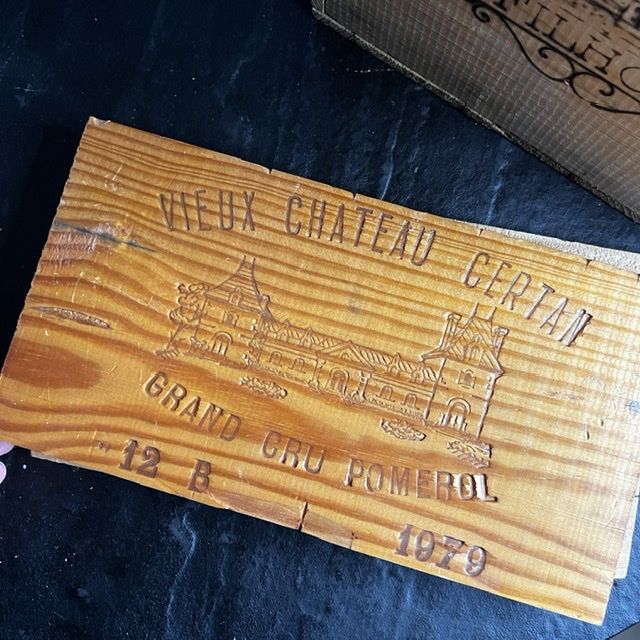 VIEUX CHATEAU CERTAN
GRAND CRU POMEROL
12 B
1979